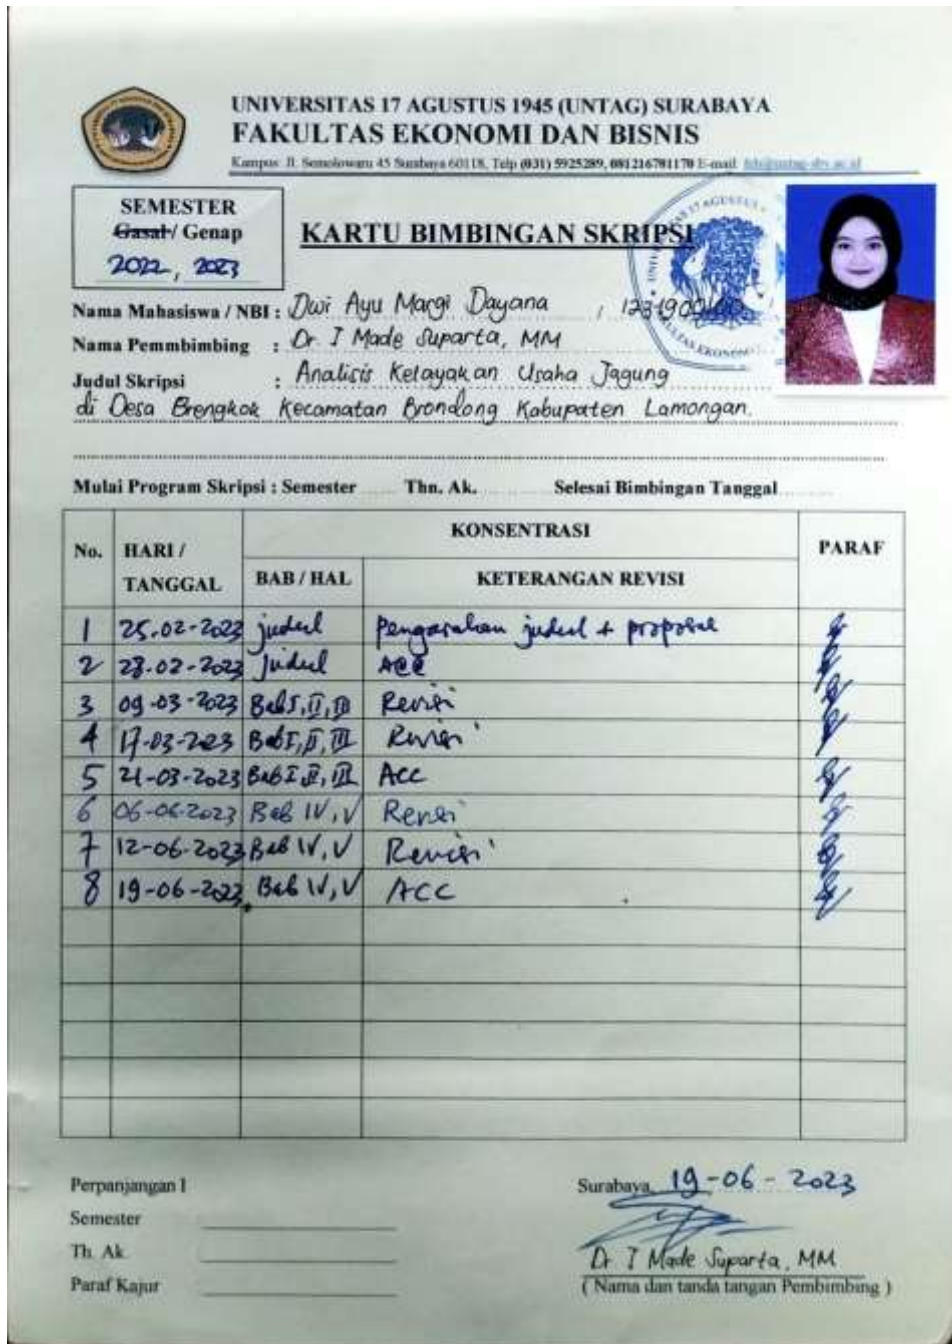 UNIVERSITAS 17 AGUSTUS 1945 (UNTAG) SURABAYA
FAKULTAS EKONOMI DAN BISNIS
Kampus: Jl. Semolowaru 45 Surabaya 60118, Telp (031) 5925289, 081216781170 E-mail:
SEMESTER
Gasal / Genap
2022, 2023
KARTU BIMBINGAN SKRIPSI
Nama Mahasiswa / NBI : Dwi Ayu Margi Dayana /
Nama Pemmbimbing : Dr. I Made Suparta, MM
Judul Skripsi : Analisis Kelayakan Usaha Jagung
di Desa Brengkok Kecamatan Brondong Kabupaten Lamongan.
Mulai Program Skripsi : Semester Thn. Ak. Selesai Bimbingan Tanggal
No. HARI / TANGGAL KONSENTRASI PARAF
BAB / HAL KETERANGAN REVISI
1 25-02-2023 judul Pengarahan judul + proposal
2 28-02-2023 judul ACC
3 09-03-2023 Bab I, II, III Revisi
4 17-03-2023 Bab I, II, III Revisi
5 21-03-2023 Bab I, II, III ACC
6 06-06-2023 Bab IV, V Revisi
7 12-06-2023 Bab IV, V Revisi
8 19-06-2023 Bab IV, V ACC
Perpanjangan I
Semester
Th. Ak
Paraf Kajur
Surabaya, 19-06-2023
Dr. I Made Suparta, MM
( Nama dan tanda tangan Pembimbing )